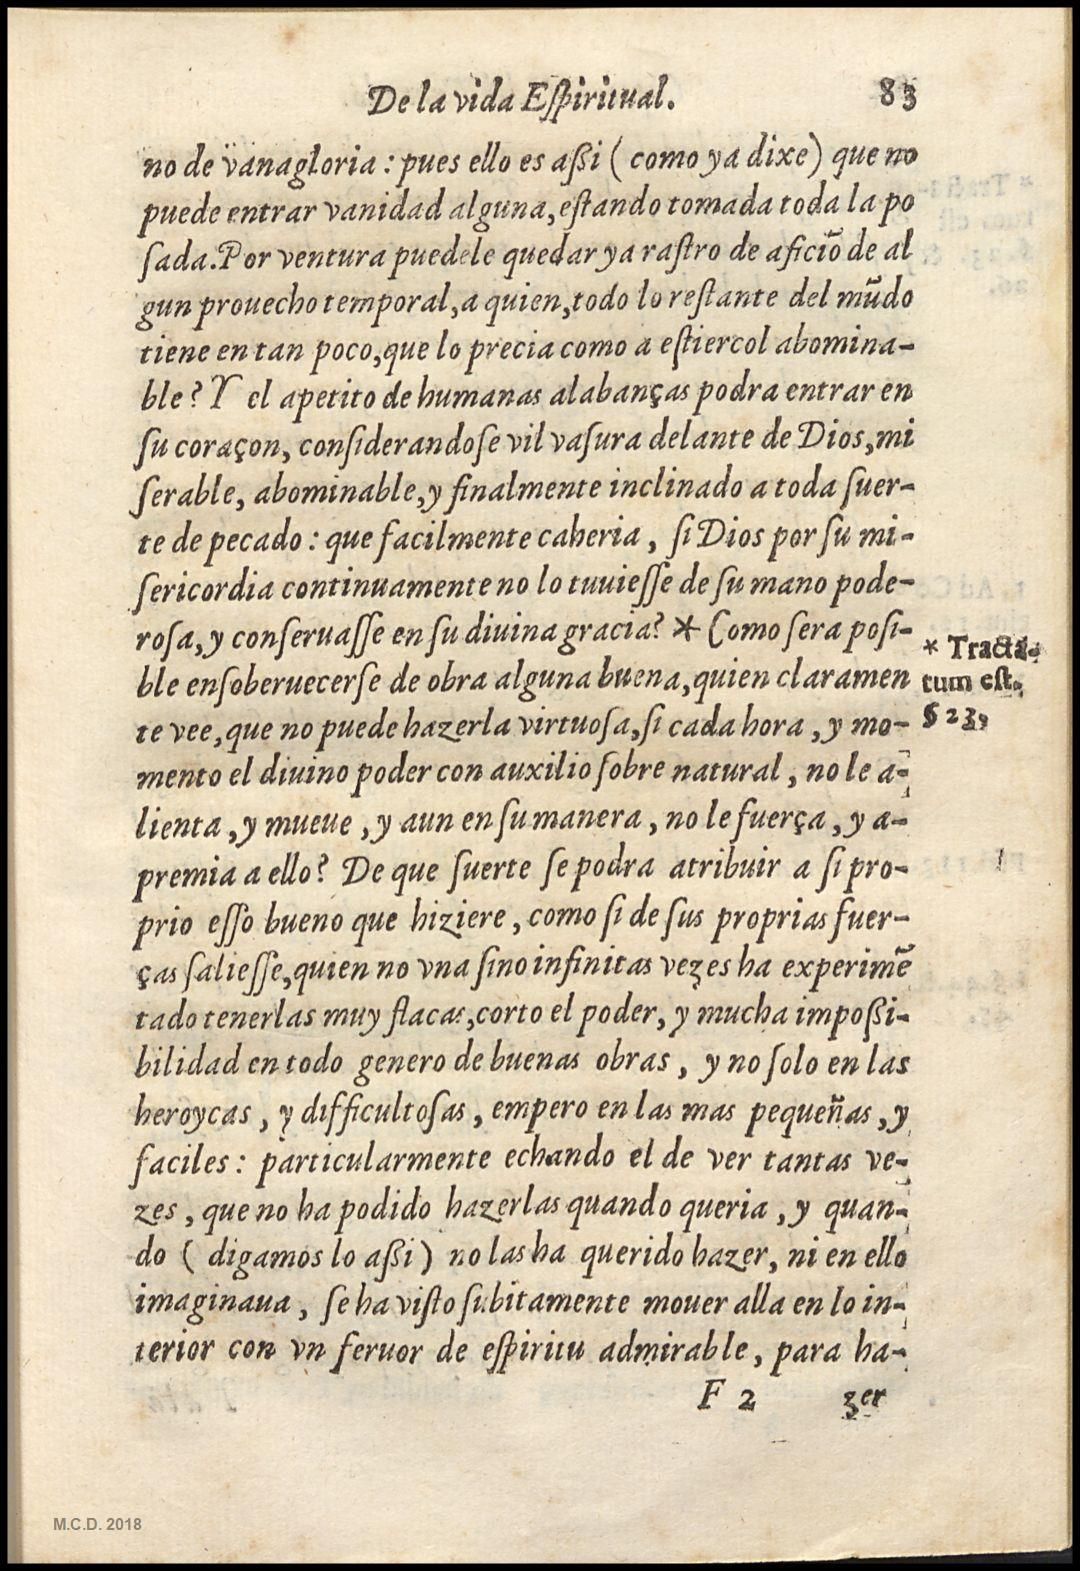 De la vida Eſpiritual. 83
no de vanagloria : pues ello es aſsi ( como ya dixe) que no
puede entrar vanidad alguna, eſtando tomada toda la po
ſada. Por ventura puedele quedar ya raſtro de aficiõ de al
gun prouecho temporal, a quien, todo lo reſtante del mũdo
tiene en tan poco, que lo precia como a eſtiercol abomina-
ble? Y el apetito de humanas alabanças podra entrar en
ſu coraçon, conſiderandoſe vil vaſura delante de Dios, mi
ſerable, abominable, y finalmente inclinado a toda ſuer-
te de pecado : que facilmente caheria, ſi Dios por ſu mi-
ſericordia continuamente no lo tuuieſſe de ſu mano pode-
roſa, y conſeruaſſe en ſu diuina gracia? * Como ſera poſi-
ble enſoberuecerſe de obra alguna buena, quien claramen
te vee, que no puede hazerla virtuoſa, ſi cada hora, y mo-
mento el diuino poder con auxilio ſobre natural, no le a-
lienta, y mueue, y aun en ſu manera, no le fuerça, y a-
premia a ello? De que ſuerte ſe podra atribuir a ſi pro-
prio eſſo bueno que hiziere, como ſi de ſus proprias fuer-
ças ſalieſſe, quien no vna ſino infinitas vezes ha experimẽ
tado tenerlas muy flacas, corto el poder, y mucha impoſsi-
bilidad en todo genero de buenas obras, y no ſolo en las
heroycas, y difficultoſas, empero en las mas pequeñas, y
faciles : particularmente echando el de ver tantas ve-
zes, que no ha podido hazerlas quando queria, y quan-
do ( digamos lo aſsi) no las ha querido hazer, ni en ello
imaginaua, ſe ha viſto ſubitamente mouer alla en lo in-
terior con vn feruor de eſpiritu admirable, para ha-
F 2 zer
* Tracta-
tum eſt.
§ 23.
M.C.D. 2018